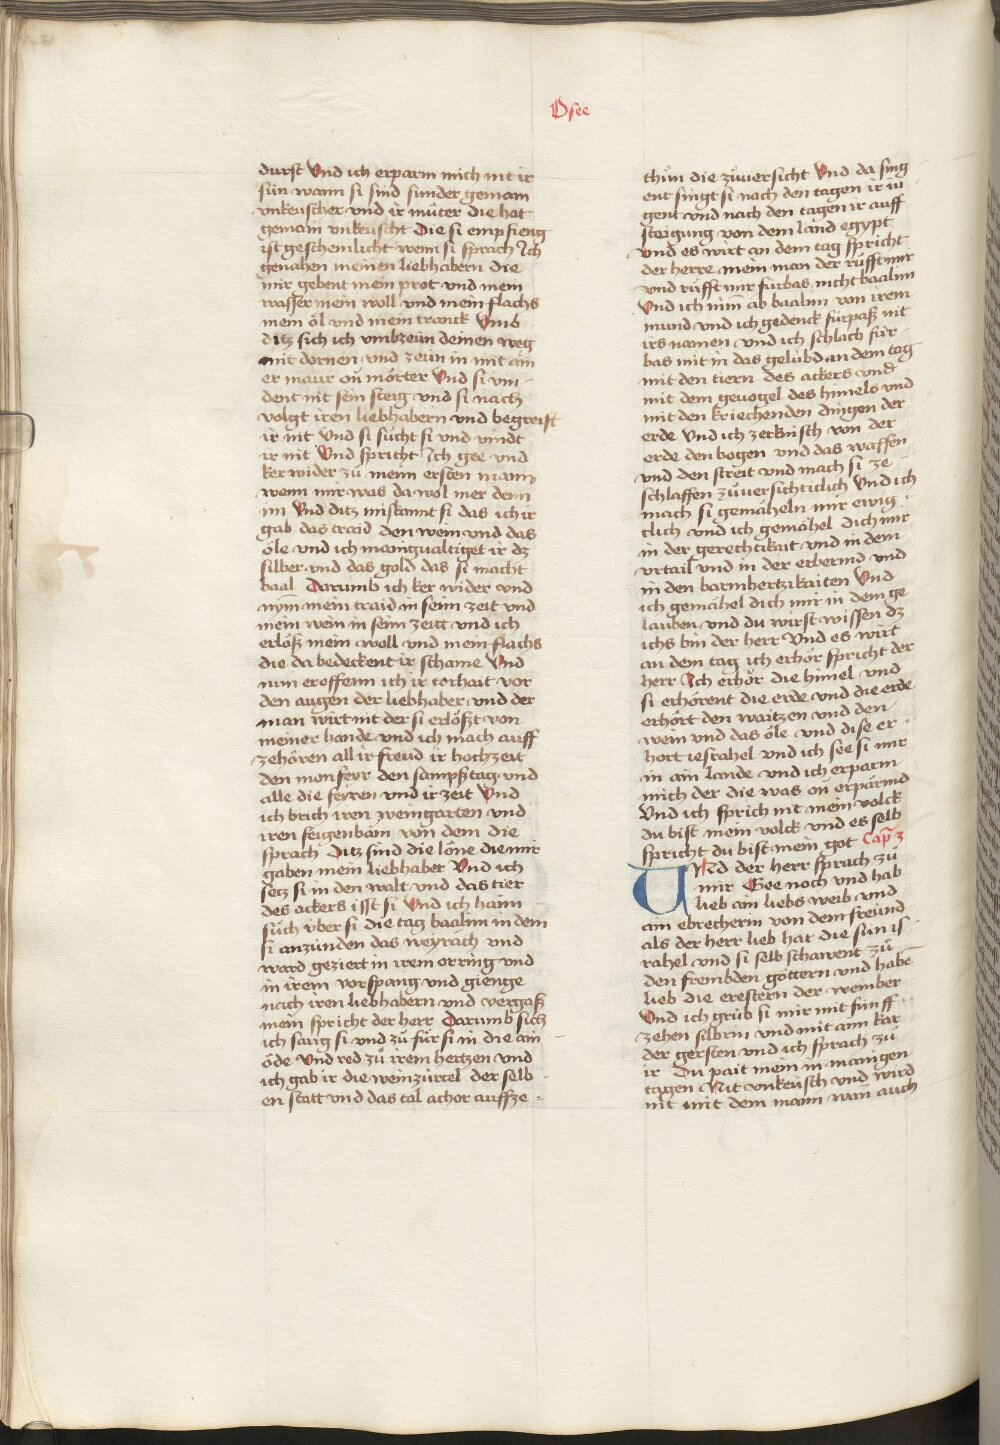 Osee
durst Vnd ich erparm mich nit ir
sün wann si sind sunder gemain
vnkeuscher vnd ir müter die hat
gemain vnkeuscht Die si empfieng
ist geschemlicht wenn si sprach Ich
genahen meinen liebhabern die
mir gebent mein prot vnd mein
wasser mein woll vnd mein flachs
mein öl vnd mein tranck Vmb
ditz sich ich vmbzeün deinen weg
mit dornen vnd zeün in mit ain
er maur on mörter Vnd si vin
dent nit sein steig vnd si nach
volgt iren liebhabern vnd begreift
ir nit Vnd si sücht si vnd vindt
ir nit Vnd spricht Ich gee vnd
ker wider zü meim ersten mann
wenn mir was da wol mer denn
nu Vnd ditz miskannt si das ich ir
gab das traid den wein vnd das
öle vnd ich manigualtiget ir dz
silber vnd das gold das si macht
baal Darumb ich ker wider vnd
nym mein traid in seinn zeit vnd
mein wein in seinn zeitt vnd ich
erlöß mein woll vnd mein flachs
die da bedeckent ir schame Vnd
nun eroffenn ich ir torhait vor
den augen der liebhaber vnd der
man wirt nit der si erlößt von
meiner hande vnd ich mach auff
zehören all ir freud ir hochzeit
den monfeyr den sampßtag vnd
alle die feyren vnd ir zeit Vnd
ich brich iren weingarten vnd
iren feigenbam von dem die
sprach Ditz sind die löne die mir
gaben mein liebhaber Vnd ich
secz si in den walt vnd das tier
des ackers isst si Vnd ich haim
süch vber si die tag baalim in dem
si anzünden das weyrach vnd
ward geziert in irem orring vnd
in irem vorspang vnd gienge
nach iren liebhabern vnd vergaß
mein spricht der herr Darumb sich
ich saug si vnd zü für si in die ain
öde Vnd red zü irem hertzen vnd
ich gab ir die weinzürtel der selb
en statt vnd das tal achor auffze
thün die züuersicht Vnd da sing
ent singt si nach den tagen ir iu
gent vnd nach den tagen ir auff
steigung von dem land egypt
vnd es wirt an dem tag spricht
der herre mein man der rüfft mir
vnd rüfft mir fürbas nicht baalim
Vnd ich nim̄ ab baalim von irem
mund vnd ich gedenck fürpaß nit
irs namen vnd ich schlach für
bas mit in das gelübd an dem tag
mit den tiern des ackers vnd
mit dem geuogel des himels vnd
mit den kriechenden dingen der
erde Vnd ich zerknisch von der
erde den bogen vnd das waffen
vnd den streit vnd mach si ze
schlaffen züuersichticlich Vnd ich
mach si gemäheln mir ewig
clich vnd ich gemähel dich mir
in der gerechtikait vnd in dem
vrtail vnd in der erbermd vnd
in den barmhertzikaiten Vnd
ich gemähel dich mir in dem ge
lauben vnd du wirst wissen dz
ichs bin der herr Vnd es wirt
an dem tag ich erhör spricht der
herr Ich erhör die himel vnd
si erhörent die erde vnd die erde
erhört den waitzen vnd den
wein vnd das öle vnd dise er
hort iesrahel vnd ich see si mir
in ain lande vnd ich erparm
mich der die was on erpärmd
Vnd ich sprich nit mein volck
du bist mein volck vnd es selb
spricht du bist mein got Cap̄ 3
Vnd der herr sprach zü
mir Gee noch vnd hab
lieb ain liebs weib vnd
ain ebrecherin von dem freund
als der herr lieb hat die sün is
rahel vnd si selb schawent zü
den frembden göttern vnd habē
lieb die erestern der wember
Vnd ich grüb si mir mit fünff
zehen silbrin vnd mit aim kar
der gersten vnd ich sprach zü
ir Du pait mein in manigen
tagen Nit vnkeusch vnd wird
nit mit dem mann wan̄ auch